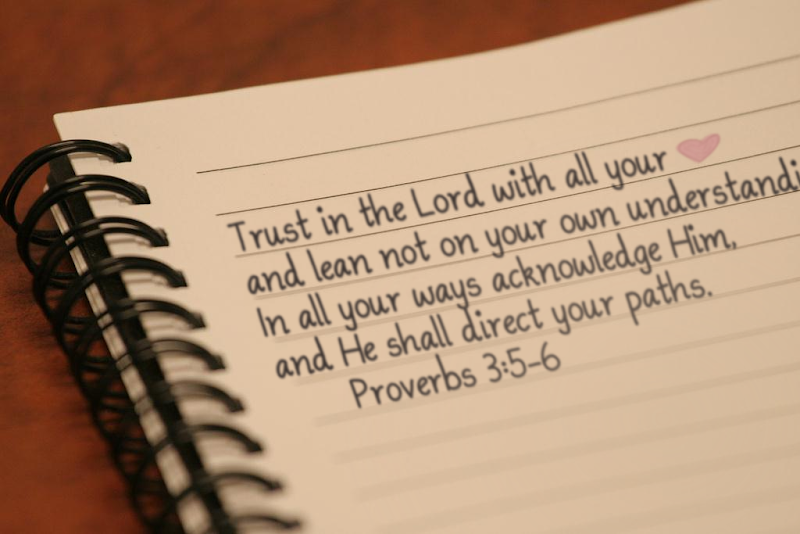 Trust in the Lord with all your
and lean not on your own understandi
In all your ways acknowledge Him,
and He shall direct your paths.
Proverbs 3:5-6